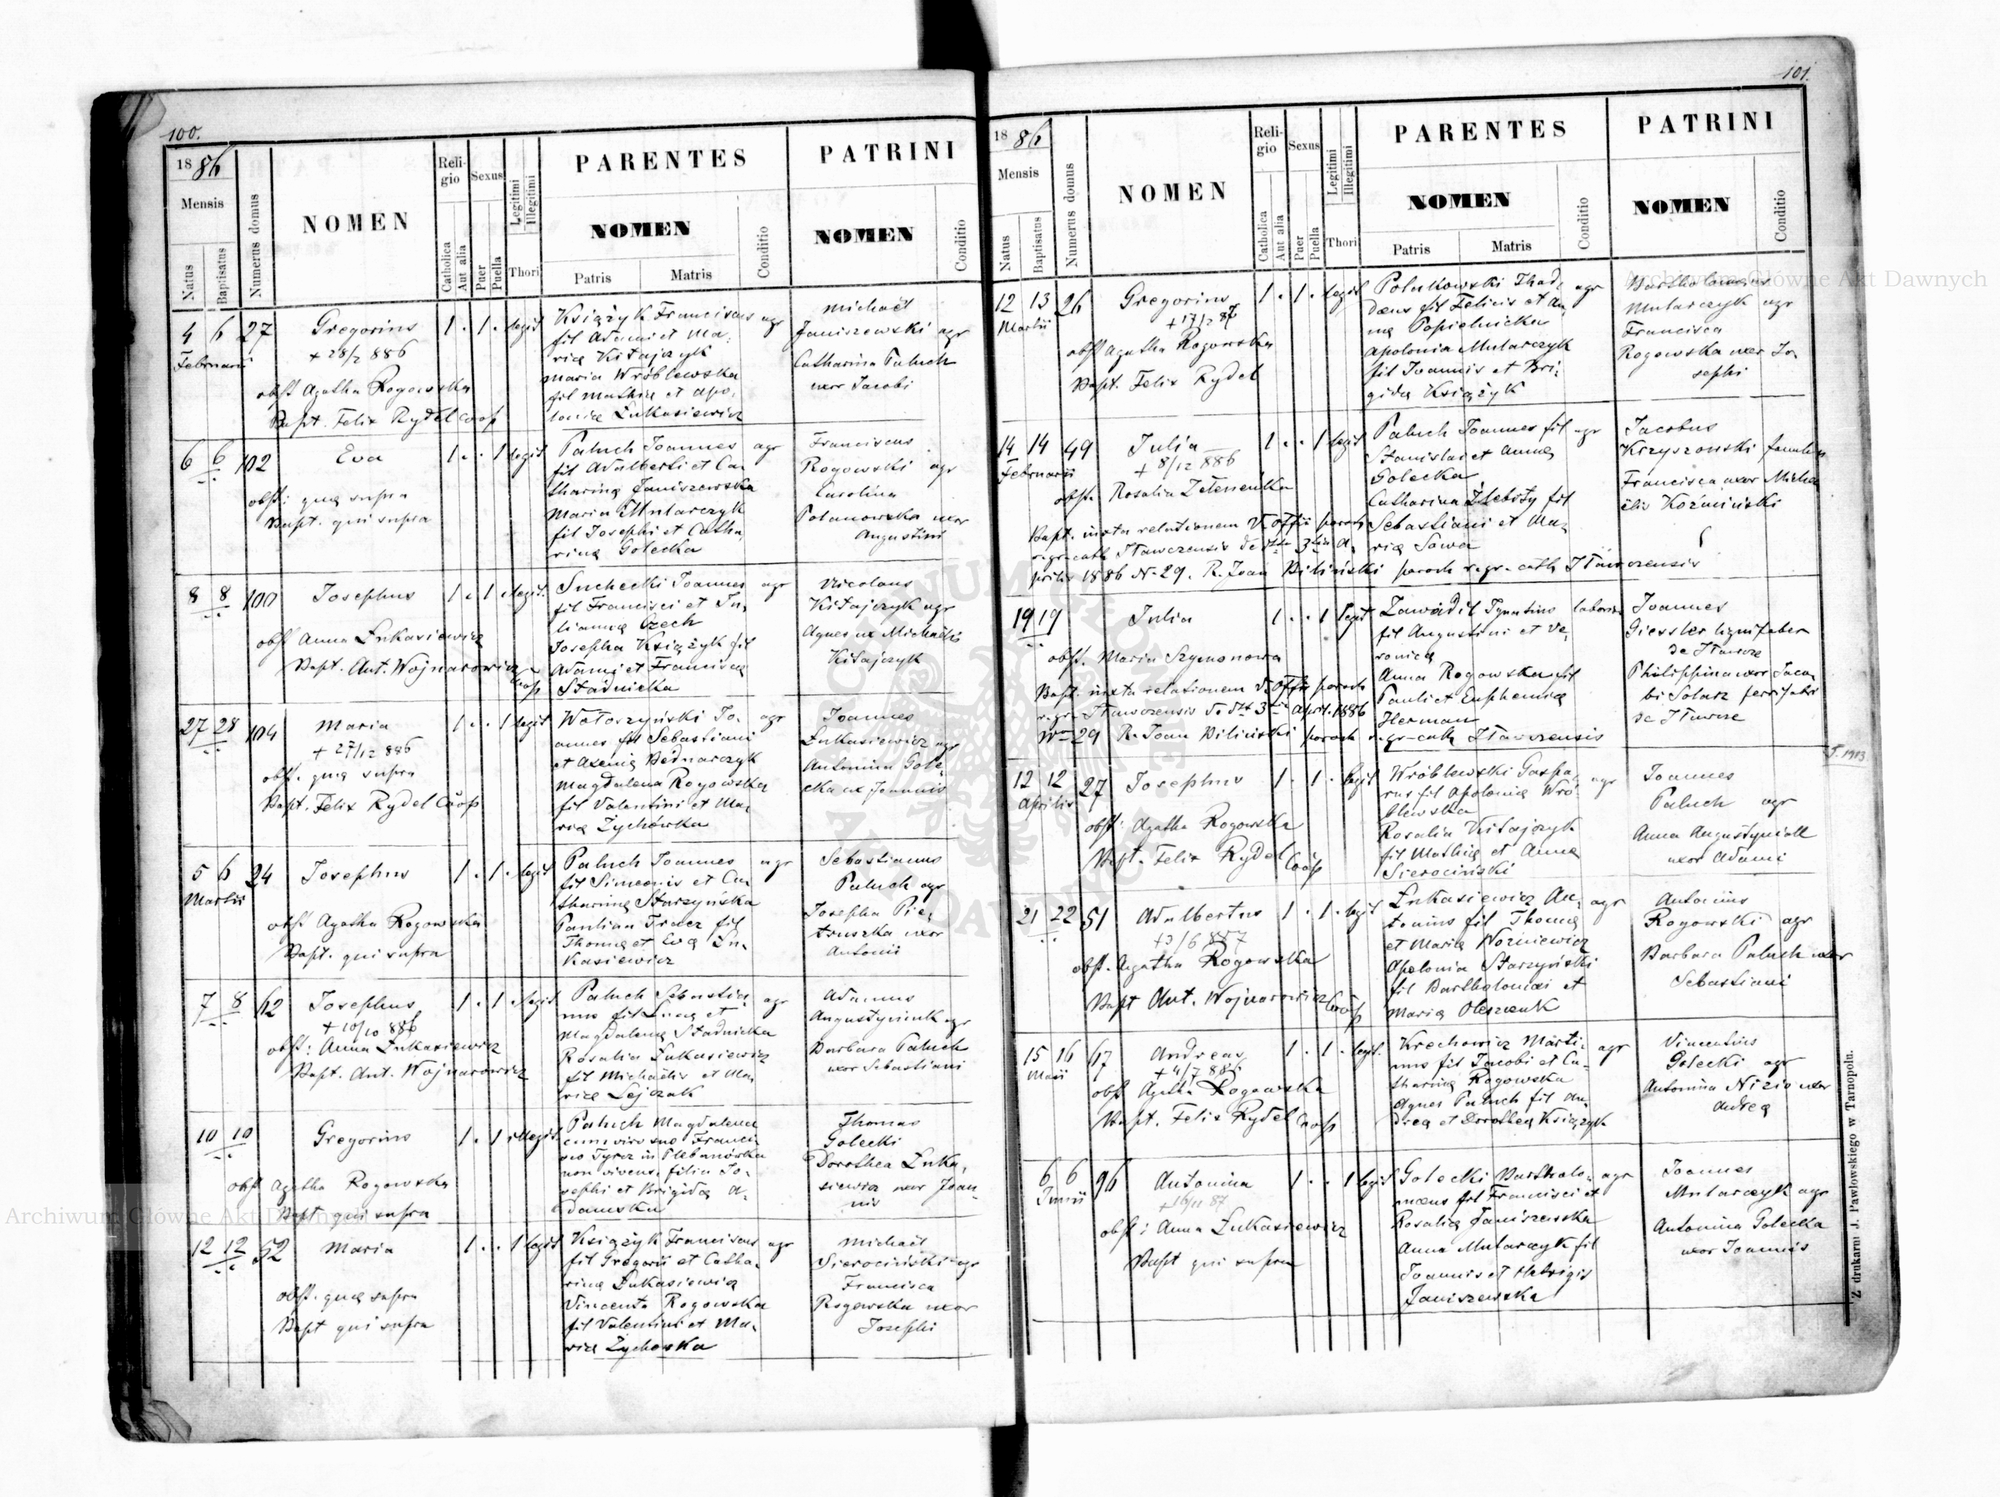 100.
18 86
Mensis
Natus
Baptisatus
Numerus domus
NOMEN
Religio
Catholica
Aut alia
Sexus
Puer
Puella
Legitimi
Illegitimi
Thori
PARENTES
NOMEN
Patris
Matris
Conditio
PATRINI
NOMEN
Conditio
4 6 27 Gregorius 1 . 1 . legit
Februarii
+ 28/2 886
obst Agatha Rogowska
Bapt. Felix Rydel Coop
Książyk Franciscus agr
fil Adami et Ma-
riæ Kitajczyk
Maria Wróblewska
fil Mathiæ et Apo-
loniæ Łukasiewicz
Michaël
Janiszewski agr
Catharina Paluch
uxor Jacobi
6 6 102 Eva 1 . . 1 legit
obst: quæ supra
Bapt. qui supra
Paluch Joannes agr
fil Adalberti et Ca-
tharinæ Janiszewska
Maria Mularczyk
fil Josephi et Catha
rinæ Golecka
Franciscus
Rogowski agr
Carolina
Polanowska uxor
Augustini
8 8 100 Josephus 1 . 1 . legit.
obst Anna Łukasiewicz
Bapt. Ant. Wojnarowicz
Coop
Suchecki Joannes agr
fil Francisci et Ju-
liannæ Czech
Josepha Książyk fil
Adami et Franciscæ
Stadnicka
Nicolaus
Kitajczyk agr
Agnes ux Michaëlis
Kitajczyk
27 28 104 Maria 1 . . 1 legit
+ 27/12 886
obst. quæ supra
Bapt. Felix Rydel Coop
Wołoszyński Jo- agr
annes fil Sebastiani
et Axeniæ Bednarczyk
Magdalena Rogowska
fil Valentini et Ma-
riæ Żychówka
Joannes
Łukasiewicz agr
Antonina Gole-
cka ux Joannis
5 6 24 Josephus 1 . 1 . legit
Martii
obst Agatha Rogowska
Bapt. qui supra
Paluch Joannes agr
fil Simeonis et Ca-
tharinæ Starzyńska
Paulina Tracz fil
Thomæ et Evæ Łu-
kasiewicz
Sebastianus
Paluch agr
Josepha Pie-
truszka uxor
Antonii
7 8 62 Josephus 1 . 1 . legit
+ 10/10 886
obst: Anna Łukasiewicz
Bapt. Ant. Wojnarowicz
Paluch Sebastia- agr
nus fil Lucæ et
Magdalenæ Stadnicka
Rosalia Łukasiewicz
fil Michaëlis et Ma-
riæ Lejczak
Adamus
Augustyniuk agr
Barbara Paluch
uxor Sebastiani
10 10 Gregorius 1 . 1 illegit
obst Agatha Rogowska
Bapt qui supra
Paluch Magdalena
cum viro suo Franci-
sco Tyrcz in Plebanówka
non vivens, filia Jo-
sephi et Brigidæ A-
damska
Thomas
Golecki
Dorothea Łuka-
siewicz uxor Joan-
nis
12 12 52 Maria 1 . . 1 legit
obst. quæ supra
Bapt qui supra
Książyk Franciscus agr
fil Gregorii et Catha-
rinæ Łukasiewicz
Vincenta Rogowska
fil Valentini et Ma-
riæ Żychowska
Michaël
Sierociński agr
Francisca
Rogowska uxor
Josephi
101.
18 86
Mensis
Natus
Baptisatus
Numerus domus
NOMEN
Religio
Catholica
Aut alia
Sexus
Puer
Puella
Legitimi
Illegitimi
Thori
PARENTES
NOMEN
Patris
Matris
Conditio
PATRINI
NOMEN
Conditio
12 13 26 Gregorius 1 . 1 . legit
Martii
+ 17/2 87
obst Agatha Rogowska
Bapt. Felix Rydel
Polukowski Thad- agr
dæus fil Felicis et An-
næ Popielnicka
Apolonia Mularczyk
fil Joannis et Bri-
gidæ Książyk
Bartholomæus
Mularczyk agr
Francisca
Rogowska uxor Jo-
sephi
14 14 49 Julia 1 . . 1 legit
Februarii
+ 8/12 886
obst. Rosalia Zeleneńka
Bapt. iuxta relationem V. Offii paroch
r. gr-cath Itawczensis de dtto 3tia A-
prilis 1886 N-29. R. Joan Biliński paroch r. gr-cath Itawczensis
Paluch Joannes fil agr
Stanislai et Annæ
Golecka
Catharina Żłobity fil
Sebastiani et Ma-
riæ Sowa
Jacobus
Krzyszonski famulus
Francisca uxor Micha
ëlis Koźmiński
19 19 Julia 1 . . 1 legit
obst. Maria Szymonowa
Bapt. iuxta relationem V. Offii paroch
r. gr- Itawczensis de dtt 3tia April. 1886
No 29 R. Joan Biliński paroch r. gr-cath Itawczensis
Zawadil Ignatius laborio
fil Augustini et Ve-
ronicæ
Anna Rogowska fil
Pauli et Euphemiæ
Herman
Joannes
Giessler lignifaber
de Itawcze
Philippina uxor Jaco-
bi Solarz ferrifabri
de Itawcze
12 12 27 Josephus 1 . 1 . legit
Aprilis
obst: Agatha Rogowska
Bapt. Felix Rydel Coop
Wróblewski Gaspa- agr
rus fil Apoloniæ Wró-
blewska
Rosalia Kitajczyk
fil Mathiæ et Annæ
Sierociński
Joannes
Paluch agr
Anna Augustyniak
uxor Adami
J. 1913
21 22 51 Adalbertus 1 . 1 . legit
+3/6 887
obst. Agatha Rogowska
Bapt Ant. Wojnarowicz Coop
Łukasiewicz An- agr
tonius fil Thomæ
et Mariæ Woźniewicz
Apolonia Starzyński
fil Bartholomæi et
Mariæ Oleszczuk
Antonius
Rogowski agr
Barbara Paluch uxor
Sebastiani
15 16 67 Andreas 1 . 1 . legit.
Maii
+ 4/7 886
obst Agatha Rogowska
Bapt. Felix Rydel Coop
Krechowicz Marti- agr
nus fil Jacobi et Ca-
tharinæ Rogowska
Agnes Paluch fil An-
dreæ et Dorotheæ Książyk
Vincentius
Golecki agr
Antonina Nizio uxor
Andreæ
6 6 96 Antonina 1 . . 1 legit
Junii
+16/11 87
obst: Anna Łukasiewicz
Bapt qui supra
Golecki Bartholo- agr
mæus fil Francisci et
Rosaliæ Janiszewska
Anna Mularczyk fil
Joannis et Hedvigis
Janiszewska
Joannes
Mularczyk agr
Antonina Golecka
uxor Joannis
Z drukarni J. Pawłowskiego w Tarnopolu.
Archiwum Główne Akt Dawnych
Archiwum Główne Akt Dawnych
ARCHIWUM GŁÓWNE AKT DAWNYCH